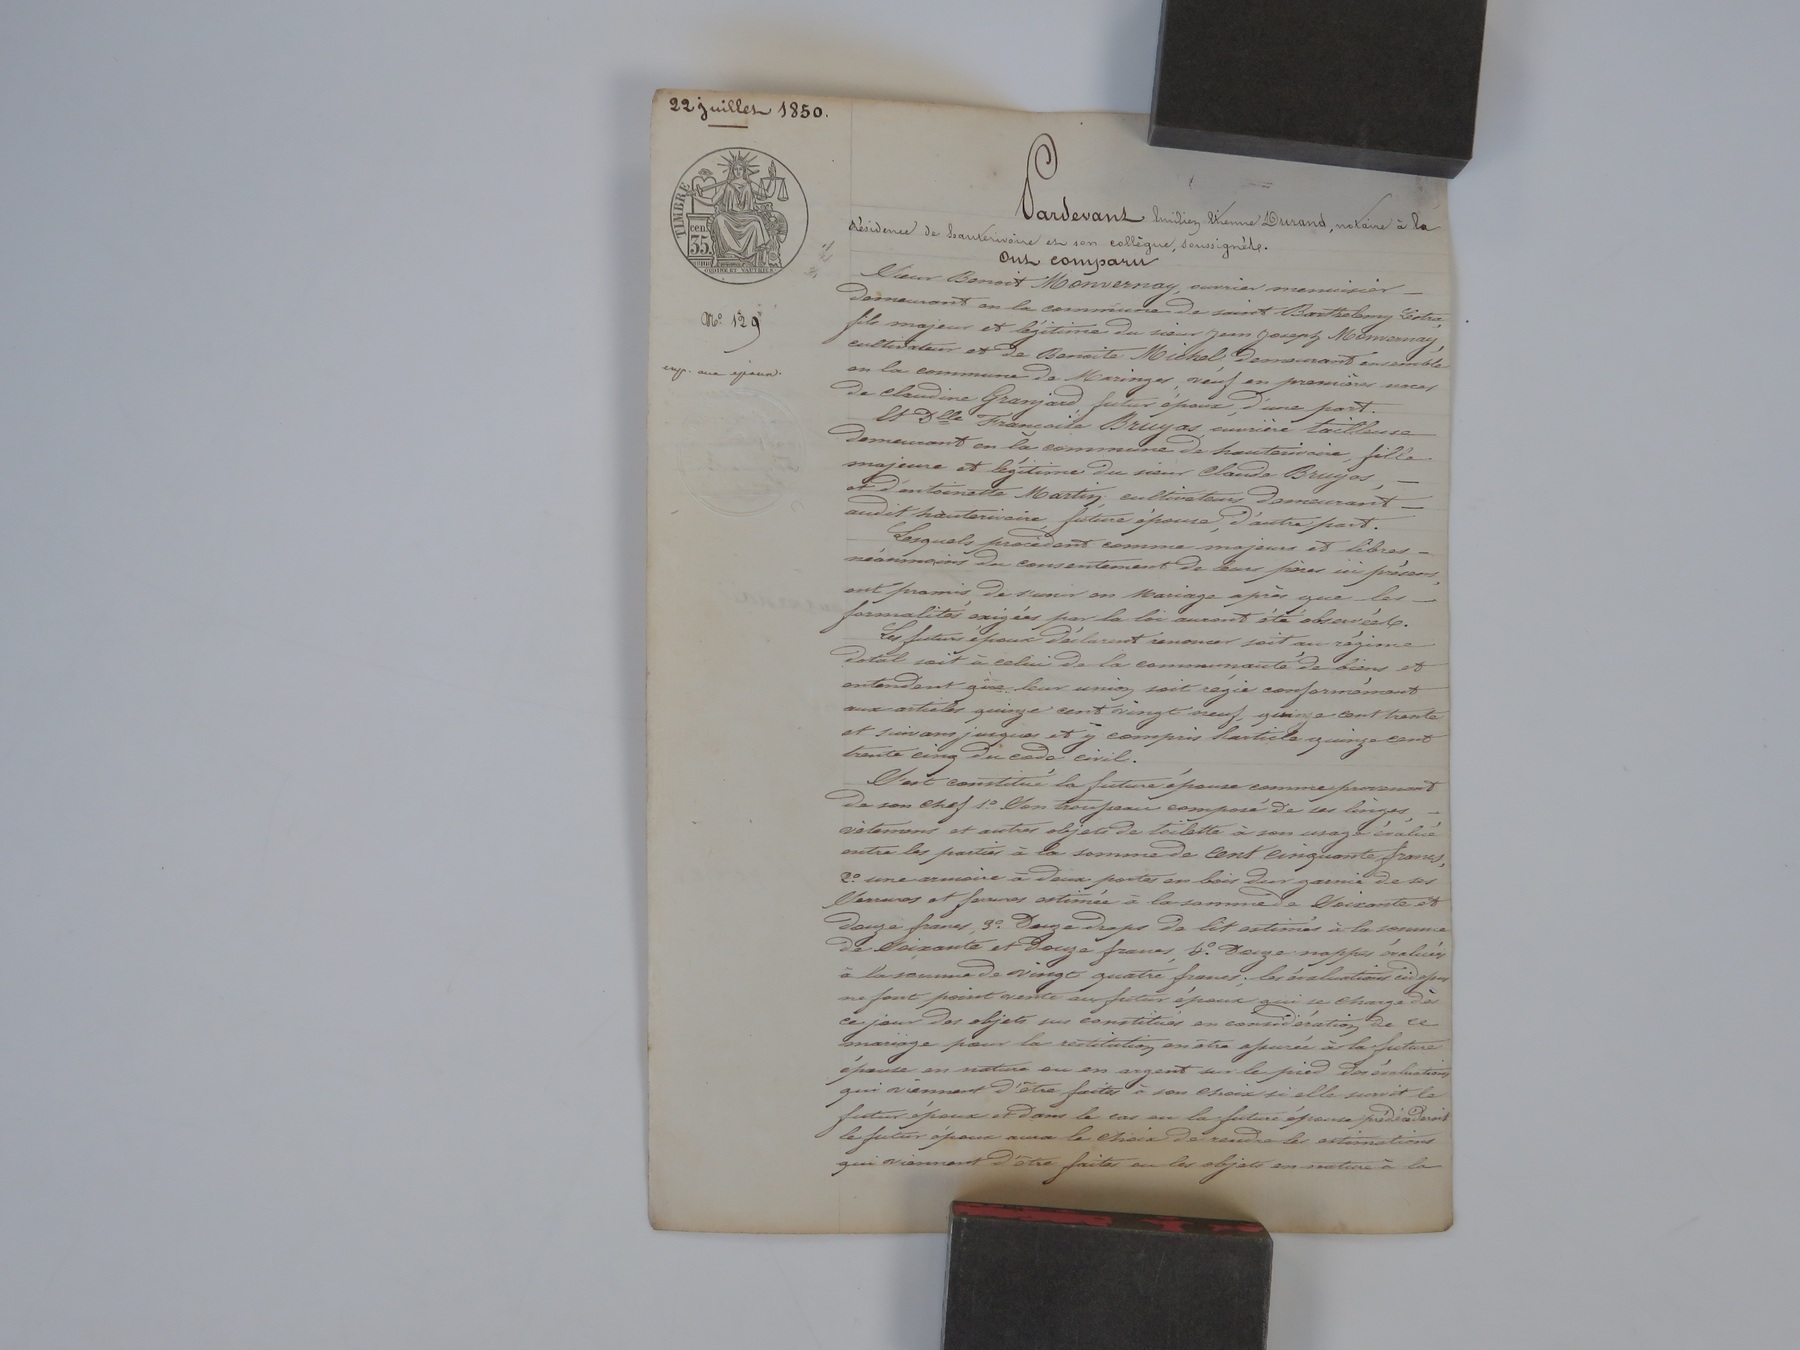 22 juillet 1850.
TIMBRE
cen.
35.
N° 129
exp. aux époux.
Pardevant Emilien Etienne Durand, notaire à la
résidence de hauterivoire et son collègue, soussignés.
Ont comparu
Sieur Benoit Monvernay, ouvrier menuisier
demeurant en la commune de saint Barthelemy Lestra,
fils majeur et légitime du sieur Jean Joseph Monvernay,
cultivateur et de Benoite Michel, demeurant ensemble
en la commune de Maringes, veuf en premières noces
de Claudine Granjard futur époux, d'une part.
Et Dlle Françoise Bruyas ouvrière tailleuse
demeurant en la commune de hauterivoire, fille
majeure et légitime du sieur Claude Bruyas,
et d'antoinette Martin, cultivateurs demeurant
audit hauterivoire, future épouse, d'autre part.
Lesquels procédant comme majeurs et libres
néanmoins du consentement de leurs pères ici présens,
ont promis de s'unir en Mariage après que les
formalités exigées par la loi auront été observées.
Les futurs époux déclarent renoncer soit au régime
dotal soit à celui de la communauté de biens et
entendent que leur union soit régie conformément
aux articles quinze cent vingt neuf, quinze cent trente
et suivans jusques et y compris l'article quinze cent
trente cinq du code civil.
S'est constitué la future épouse comme provenant
de son chef 1° Son trousseau composé de ses linges,
vêtemens et autres objets de toilette à son usage évalué
entre les parties à la somme de cent cinquante francs,
2° une armoire à deux portes en bois dur garnie de ses
serrures et ferrures estimée à la somme de Soixante et
douze francs, 3° Douze draps de lit estimés à la somme
de Soixante et Douze francs, 4° Douze nappes évaluées
à la somme de vingt quatre francs. les évaluations ci dessus
ne font point vente au futur époux qui se charge dès
ce jour des objets sus constitués en considération de ce
mariage pour la restitution en être assurée à la future
épouse en nature ou en argent sur le pied des évaluations
qui viennent d'être faites à son choix si elle survit le
futur époux et dans le cas ou la future épouse prédécéderait
le futur époux aura le choix de rendre les estimations
qui viennent d'être faites ou les objets en nature à la